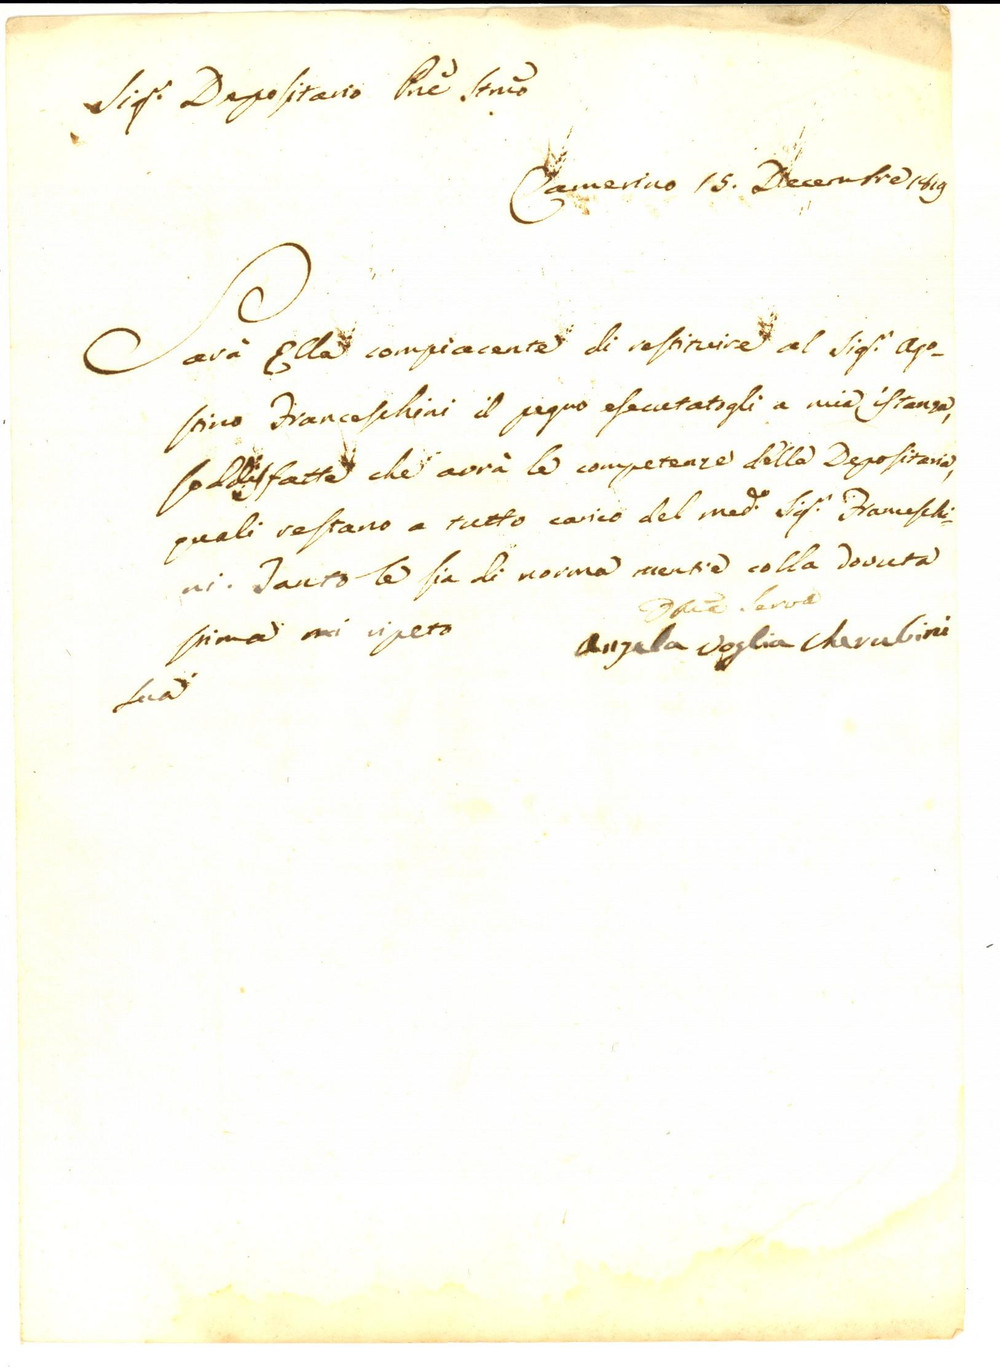 Sig.r Depositario Pne Stmo
Camerino 15. Decembre 1819
Sarà Ella compiacente di restituire al Sig.r Ago-
stino Franceschini il pegno esecutatogli a mia istanza,
soddisfatte che avrà le competenze della Depositaria,
quali restano a tutto carico del med.o Sig.r Franceschi-
ni. Tanto le sia di norma mentre colla dovuta
stima mi ripeto
Sua
Serva
Angela Voglia Cherubini